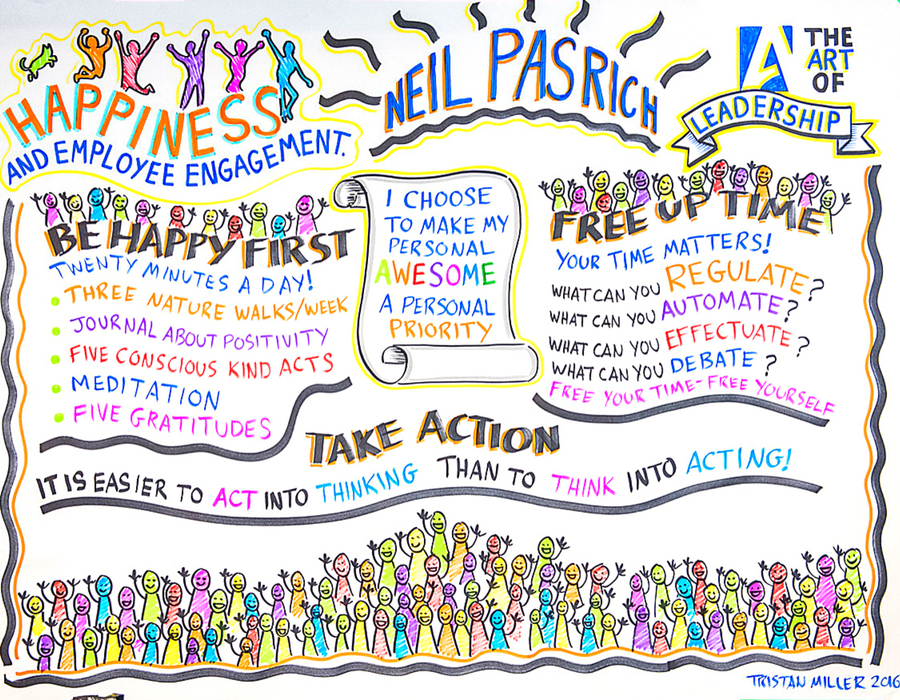 HAPPINESS
AND EMPLOYEE ENGAGEMENT.
NEIL PASRICH
A
THE
ART
OF
LEADERSHIP
BE HAPPY FIRST
TWENTY MINUTES A DAY!
• THREE NATURE WALKS/WEEK
• JOURNAL ABOUT POSITIVITY
• FIVE CONSCIOUS KIND ACTS
• MEDITATION
• FIVE GRATITUDES
I CHOOSE
TO MAKE MY
PERSONAL
AWESOME
A PERSONAL
PRIORITY
FREE UP TIME
YOUR TIME MATTERS!
WHAT CAN YOU REGULATE?
WHAT CAN YOU AUTOMATE?
WHAT CAN YOU EFFECTUATE?
WHAT CAN YOU DEBATE?
FREE YOUR TIME-FREE YOURSELF
TAKE ACTION
IT IS EASIER TO ACT INTO THINKING THAN TO THINK INTO ACTING!
TRISTAN MILLER 2016